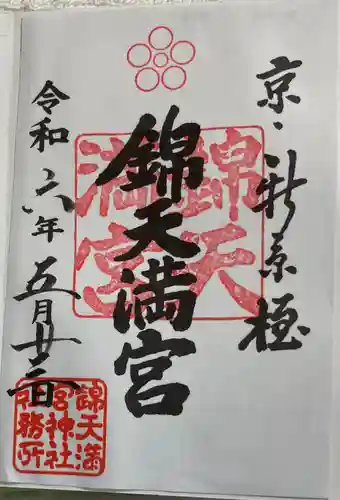 京・新京極
錦天満宮
錦天
満宮
令和六年五月廿三日
錦天満
宮神社
社務所